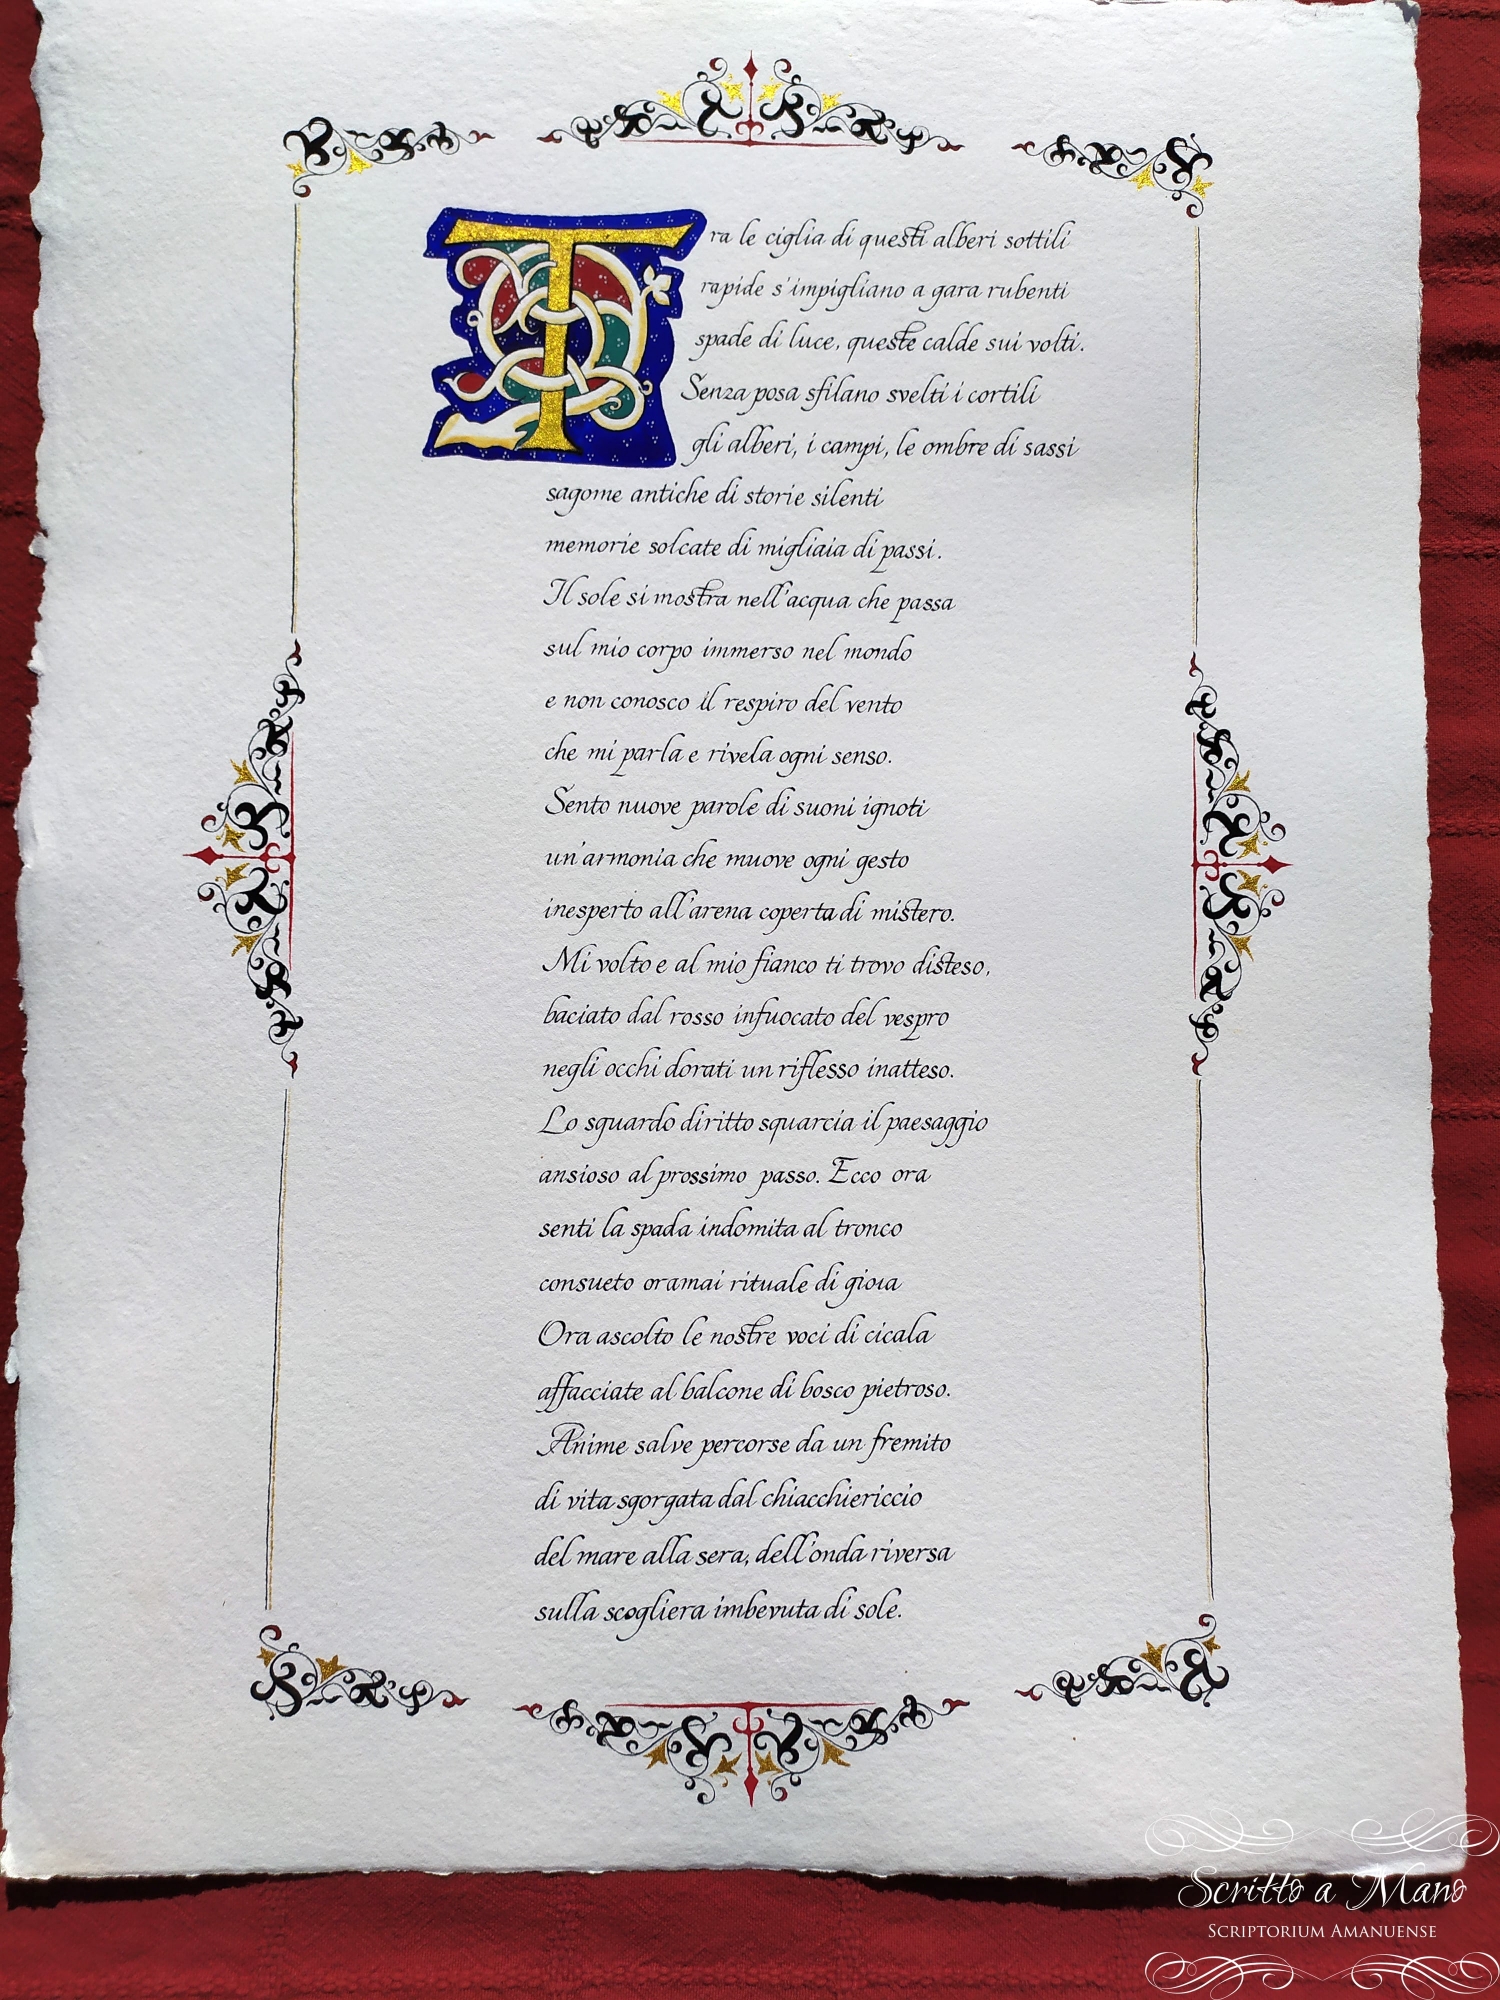 Tra le ciglia di questi alberi sottili
rapide s'impigliano a gara rubenti
spade di luce, queste calde sui volti.
Senza posa sfilano svelti i cortili
gli alberi, i campi, le ombre di sassi
sagome antiche di storie silenti
memorie solcate di migliaia di passi.
Il sole si mostra nell'acqua che passa
sul mio corpo immerso nel mondo
e non conosco il respiro del vento
che mi parla e rivela ogni senso.
Sento nuove parole di suoni ignoti
un'armonia che muove ogni gesto
inesperto all'arena coperta di mistero.
Mi volto e al mio fianco ti trovo disteso,
baciato dal rosso infuocato del vespro
negli occhi dorati un riflesso inatteso.
Lo sguardo diritto squarcia il paesaggio
ansioso al prossimo passo. Ecco ora
senti la spada indomita al tronco
consueto oramai rituale di gioia
Ora ascolto le nostre voci di cicala
affacciate al balcone di bosco pietroso.
Anime salve percorse da un fremito
di vita sgorgata dal chiacchiericcio
del mare alla sera, dell'onda riversa
sulla scogliera imbevuta di sole.
Scritto a Mano
Scriptorium Amanuense